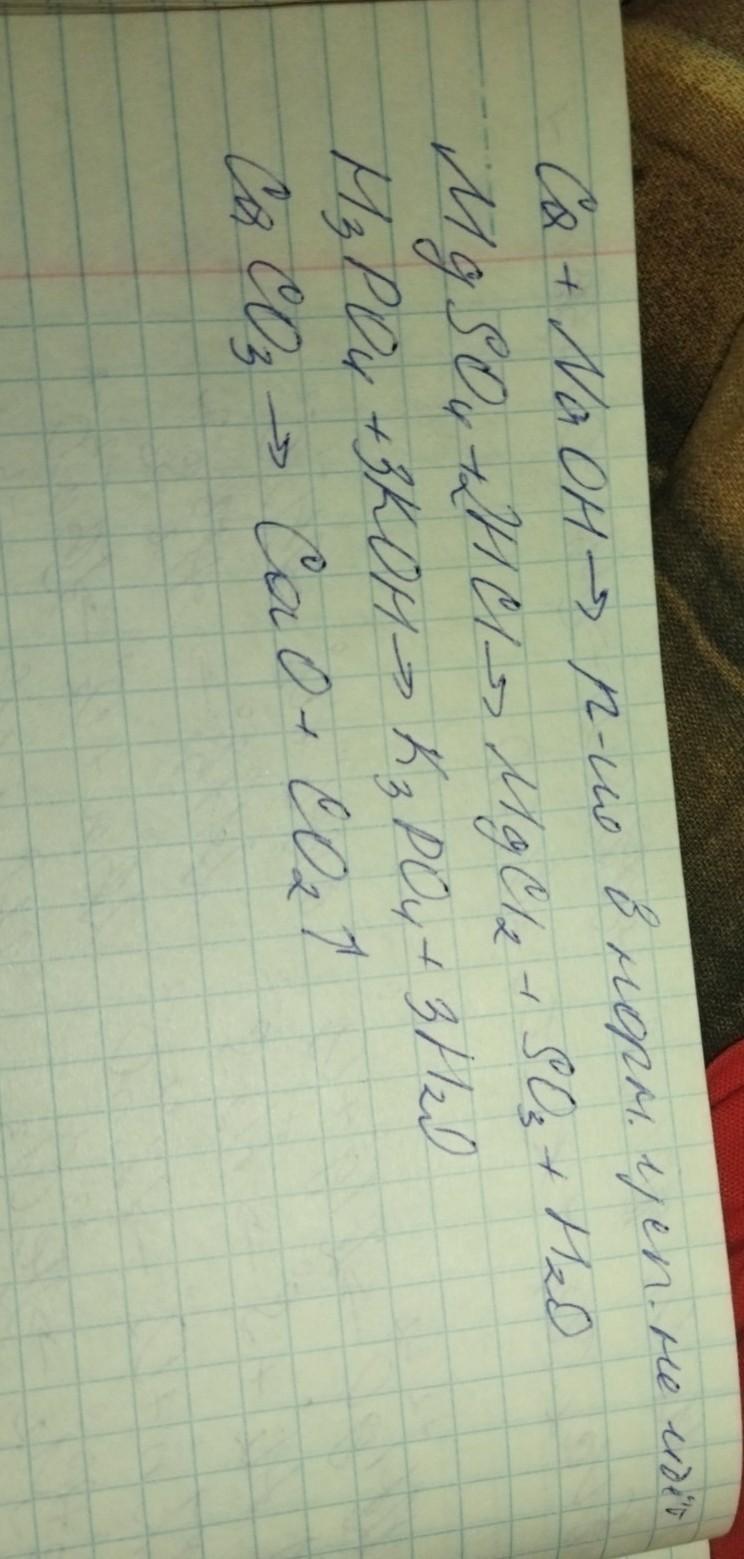 Ca + NaOH → р-ию в норм. усл. не идёт
MgSO₄ + 2HCl → MgCl₂ + SO₃ + H₂O
H₃PO₄ + 3KOH → K₃PO₄ + 3H₂O
CaCO₃ → CaO + CO₂↑